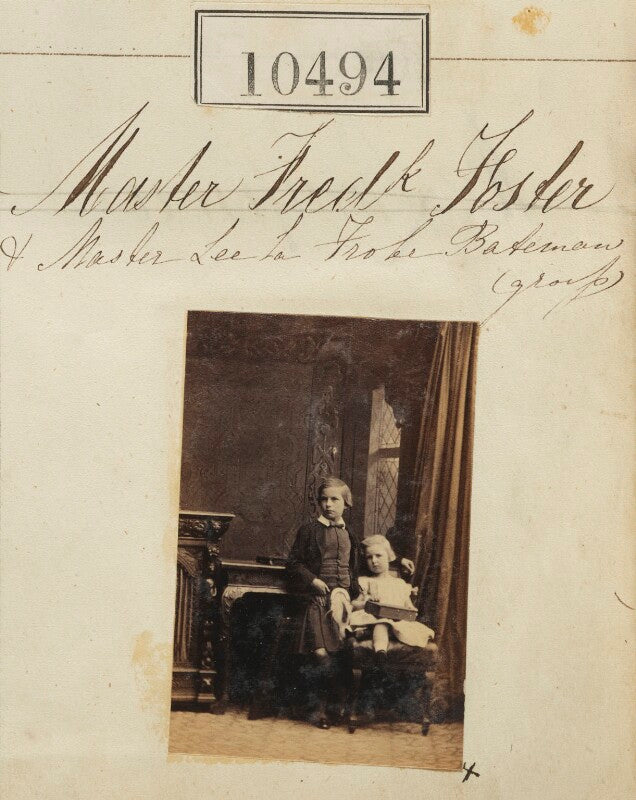 10494
Master Fredk Foster
& Master Lee La Trobe Bateman
(group)